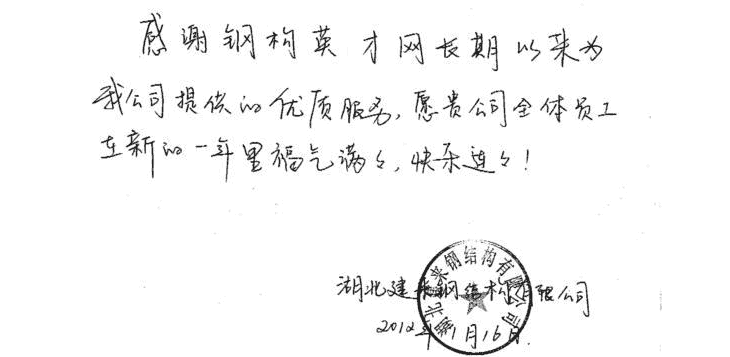 感谢钢构英才网长期以来为
我公司提供的优质服务，愿贵公司全体员工
在新的一年里福气满々，快乐连々！
湖北建来钢结构有限公司
湖北建来钢结构有限公司
2012年1月16日